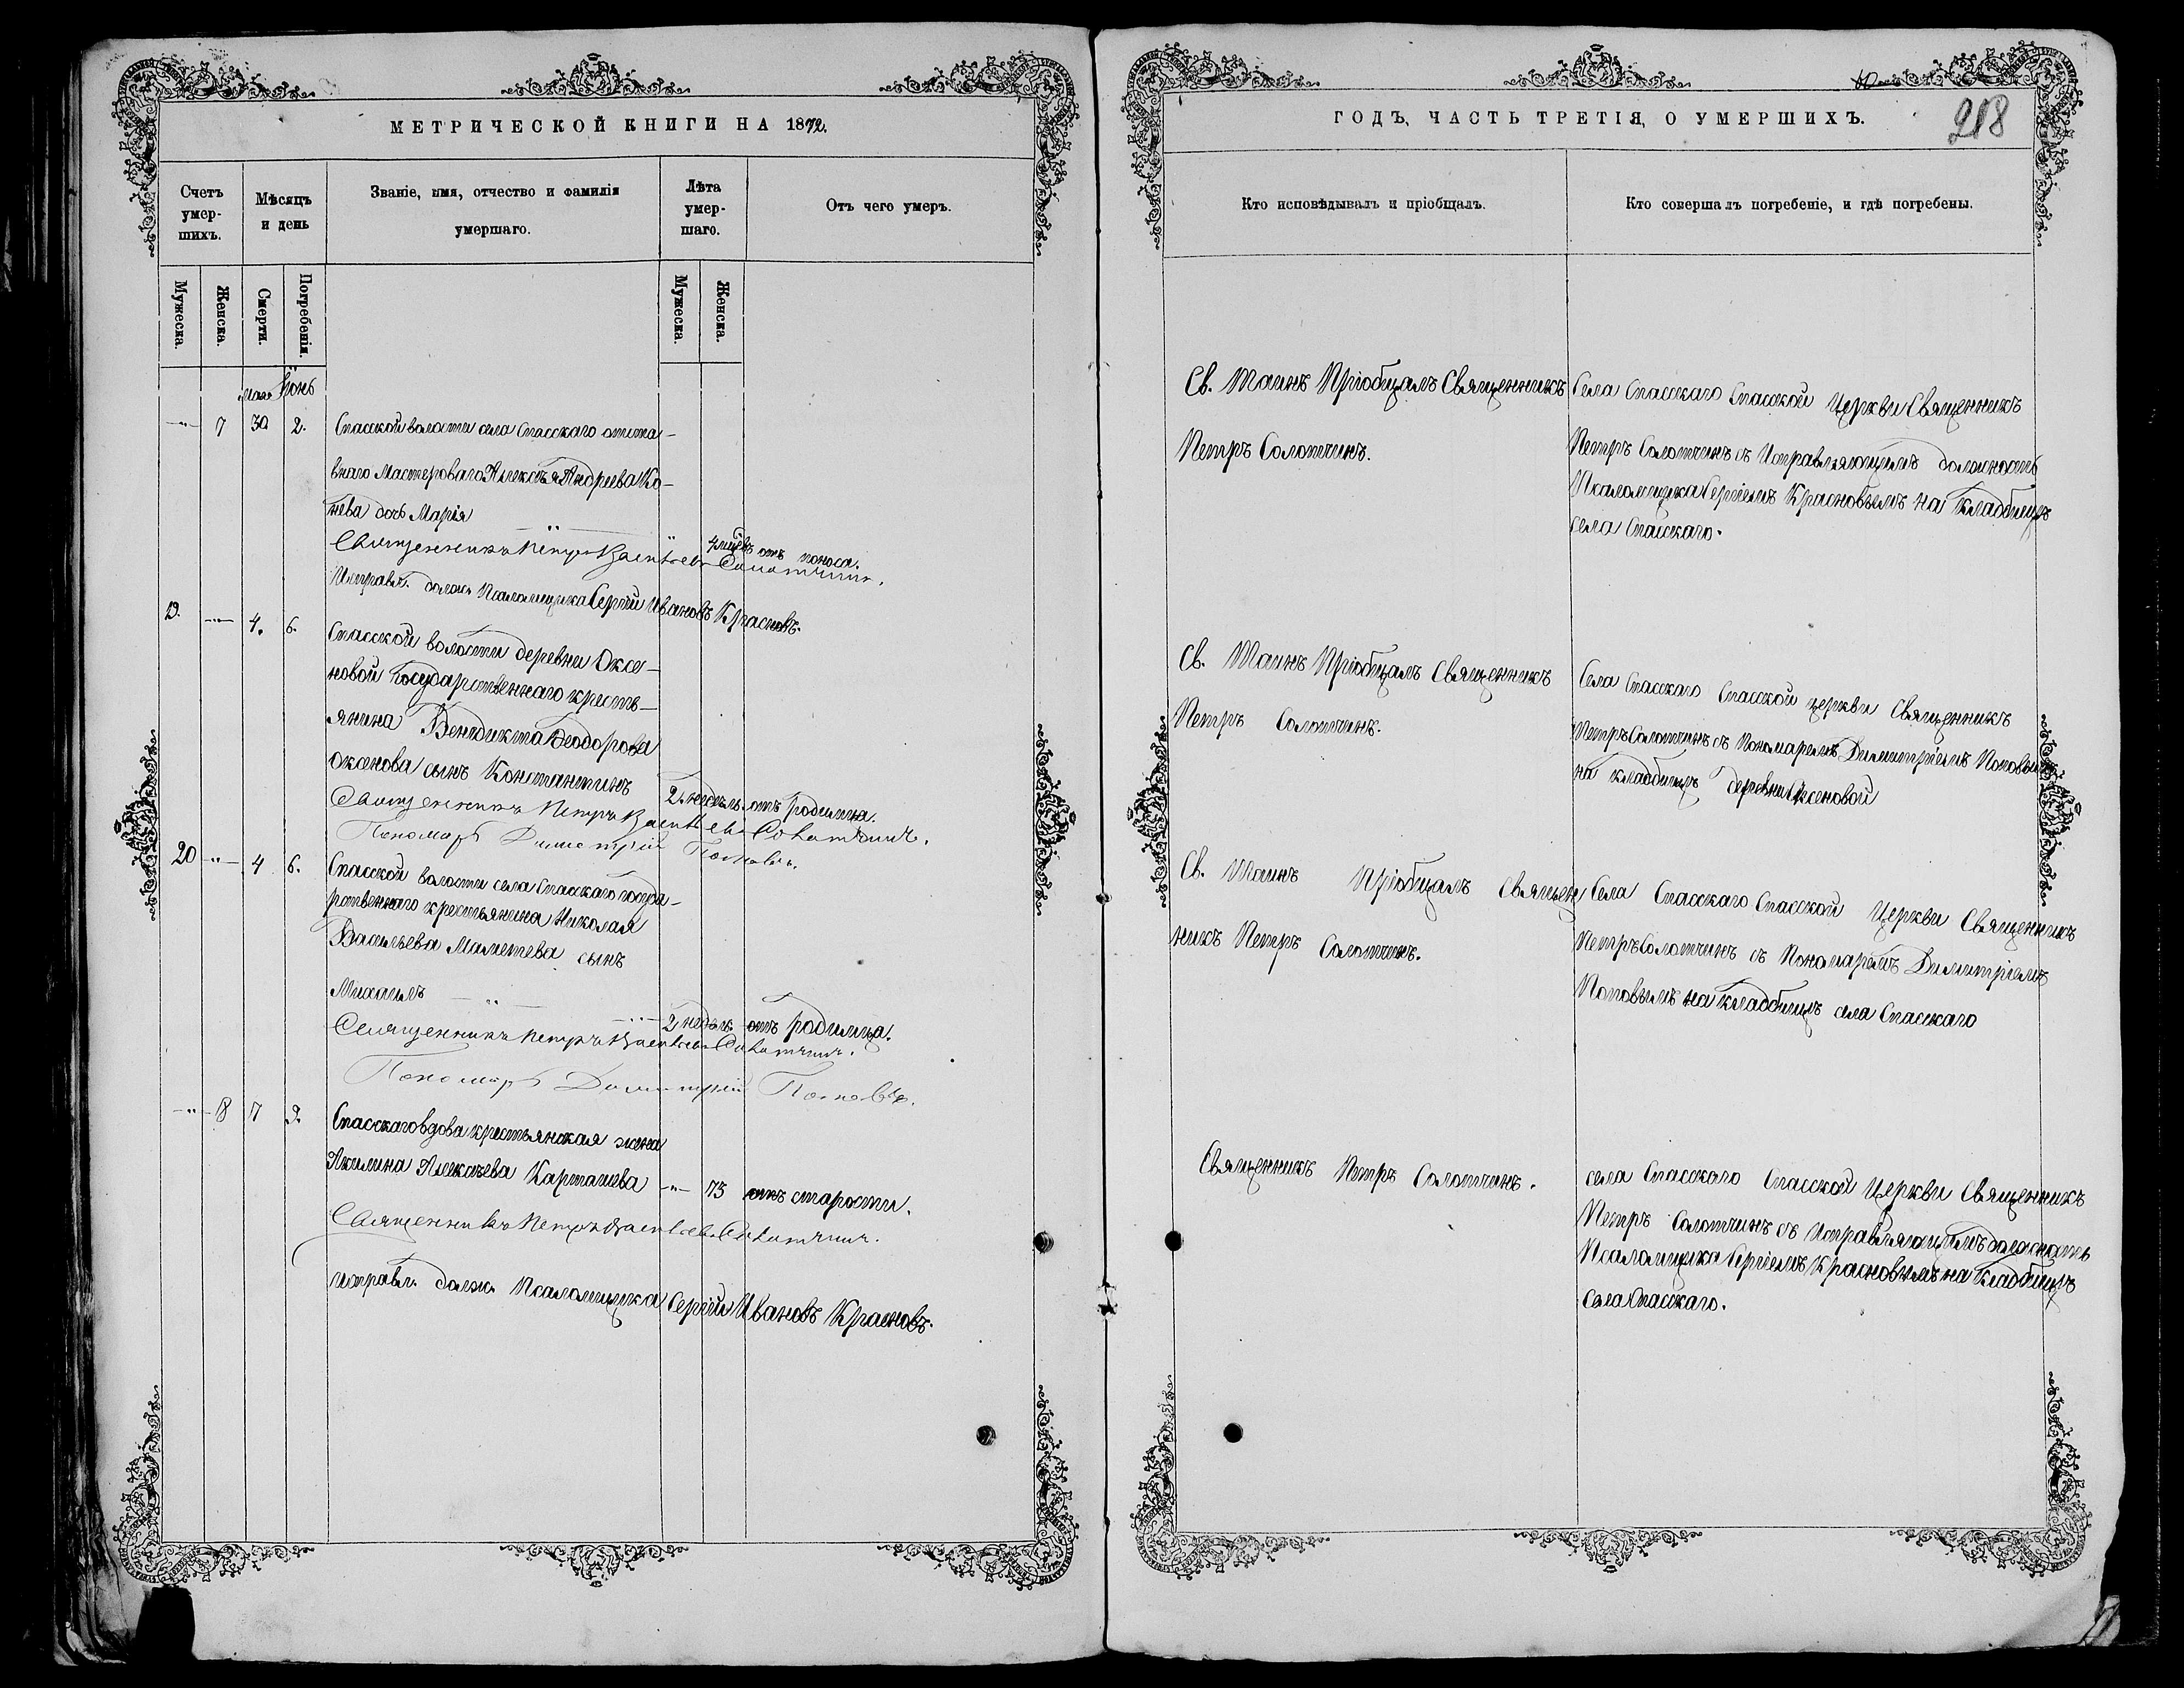 МЕТРИЧЕСКОЙ КНИГИ НА 1872.
Счетъ умер-шихъ.
Мѣсяцъ и день
Званіе, имя, отчество и фамилія умершаго.
Лѣта умер-шаго.
Отъ чего умеръ.
Мужеска.
Женска.
Смерти.
Погребенія.
Мужеска.
Женска.
Мая Іюнь
7 30 2. Спасской волости села Спасскаго отста-
внаго Мастероваго Алексѣя Андреева Ко-
нева дочь Марія
4 мѣсць отъ поноса.
Священникъ Петръ Васильевъ Солотчинъ.
Исправл. должн. Псаломщика Сергій Ивановъ Красновъ.
19. 4. 6. Спасской волости деревни Оксе-
новой Государственнаго кресть-
янина Венедикта Ѳеодорова
Оксенова сынъ Константинъ
2 недѣль отъ родимца.
Священникъ Петръ Васильевъ Солотчинъ.
Пономарь Димитрій Поповъ.
20 4 6. Спасской волости села Спасскаго госуда-
рственнаго крестьянина Николая
Васильева сынъ
Михаилъ
2 недѣль отъ родимца.
Священникъ Петръ Васильевъ Солотчинъ.
Пономарь Димитрій Поповъ.
8 7 9. Спасскаго вдова крестьянская жена
Акилина Алексѣева Карташева 75 отъ старости.
Священникъ Петръ Васильевъ Солотчинъ.
исправл. должн. Псаломщика Сергій Ивановъ Красновъ.
ГОДЪ, ЧАСТЬ ТРЕТІЯ, О УМЕРШИХЪ.
218
Кто исповѣдывалъ и пріобщалъ.
Кто совершалъ погребеніе, и гдѣ погребены.
Св. Таинъ Пріобщалъ Священникъ
Петръ Солотчинъ.
Села Спасскаго Спасской Церкви Священникъ
Петръ Солотчинъ съ Исправляющимъ должность
Псаломщика Сергіемъ Красновымъ на Кладбищѣ
села Спасскаго.
Св. Таинъ Пріобщалъ Священникъ
Петръ Солотчинъ.
Села Спасскаго Спасской церкви Священникъ
Петръ Солотчинъ съ Пономаремъ Димитріемъ Поповымъ
на кладбищѣ деревни Оксеновой
Св. Таинъ Пріобщалъ Священ
никъ Петръ Солотчинъ.
Села Спасскаго Спасской Церкви Священникъ
Петръ Солотчинъ съ Пономаремъ Димитріемъ
Поповымъ на Кладбищѣ села Спасскаго
Священникъ Петръ Солотчинъ.
села Спасскаго Спасской Церкви Священникъ
Петръ Солотчинъ съ Исправляющимъ должность
Псаломщика Сергіемъ Красновымъ на Кладбищѣ
села Спасскаго.